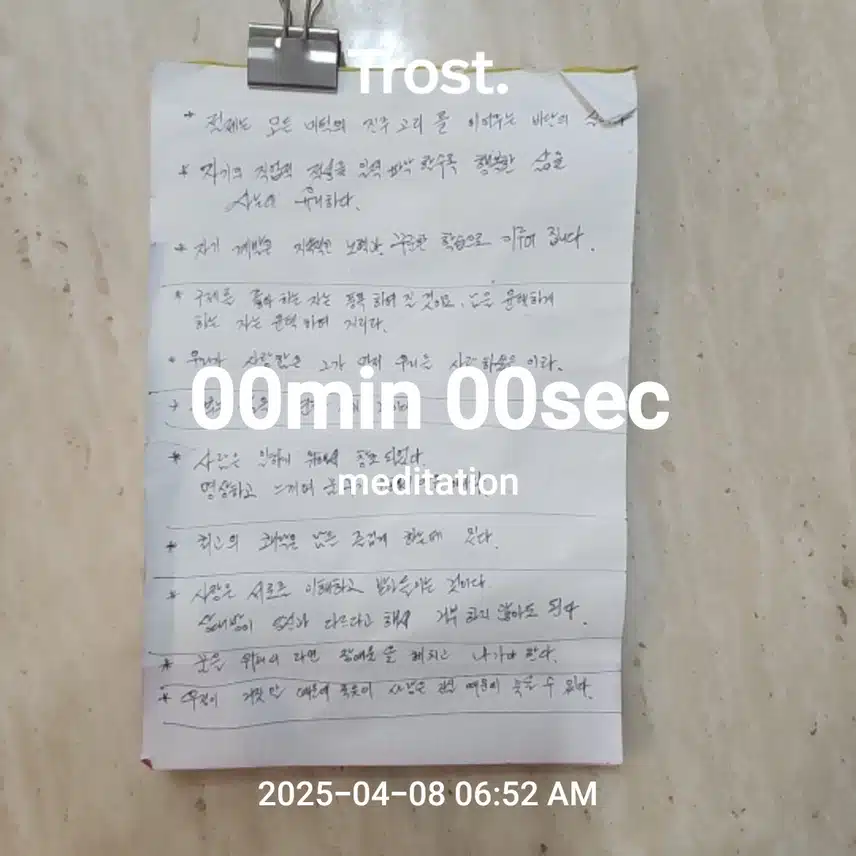 Trost.
* 절제는 모든 미덕의 진주 고리 를 이어주는 비단의
* 자기의 직업의 행복한 삶을
유리하다.
* 자기 계발은 지속적인 노력과 꾸준한 학습으로 이루어 집니다.
* 구제를 좋아 하는 자는 풍족 하여 질 것이요, 남을 윤택하게
하는 자는 윤택 하여 지리라.
* 우리가 사랑함은 그가 먼저 우리를 사랑 하셨음 이라.
00min 00sec
* 사람은 위해서 창조 되었다
명상하고 느끼며
meditation
* 최고의 쾌락은 남을 즐겁게 하는데 있다.
* 사랑은 서로를 이해하고 받아들이는 것이다
상대방이 다르다고 해서 거부 하지 않아도 된다.
* 꿈을 위해서 라면 장애물 을 헤치고 나가야 한다.
* 우정이 거짓말 때문에 죽듯이 사랑은 진실 때문에 죽을 수 있다.
2025-04-08 06:52 AM